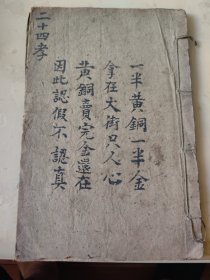 二十四孝
一半黄銅一半金
拿在大街只人心
黄銅賣完金還在
因此認假不認真